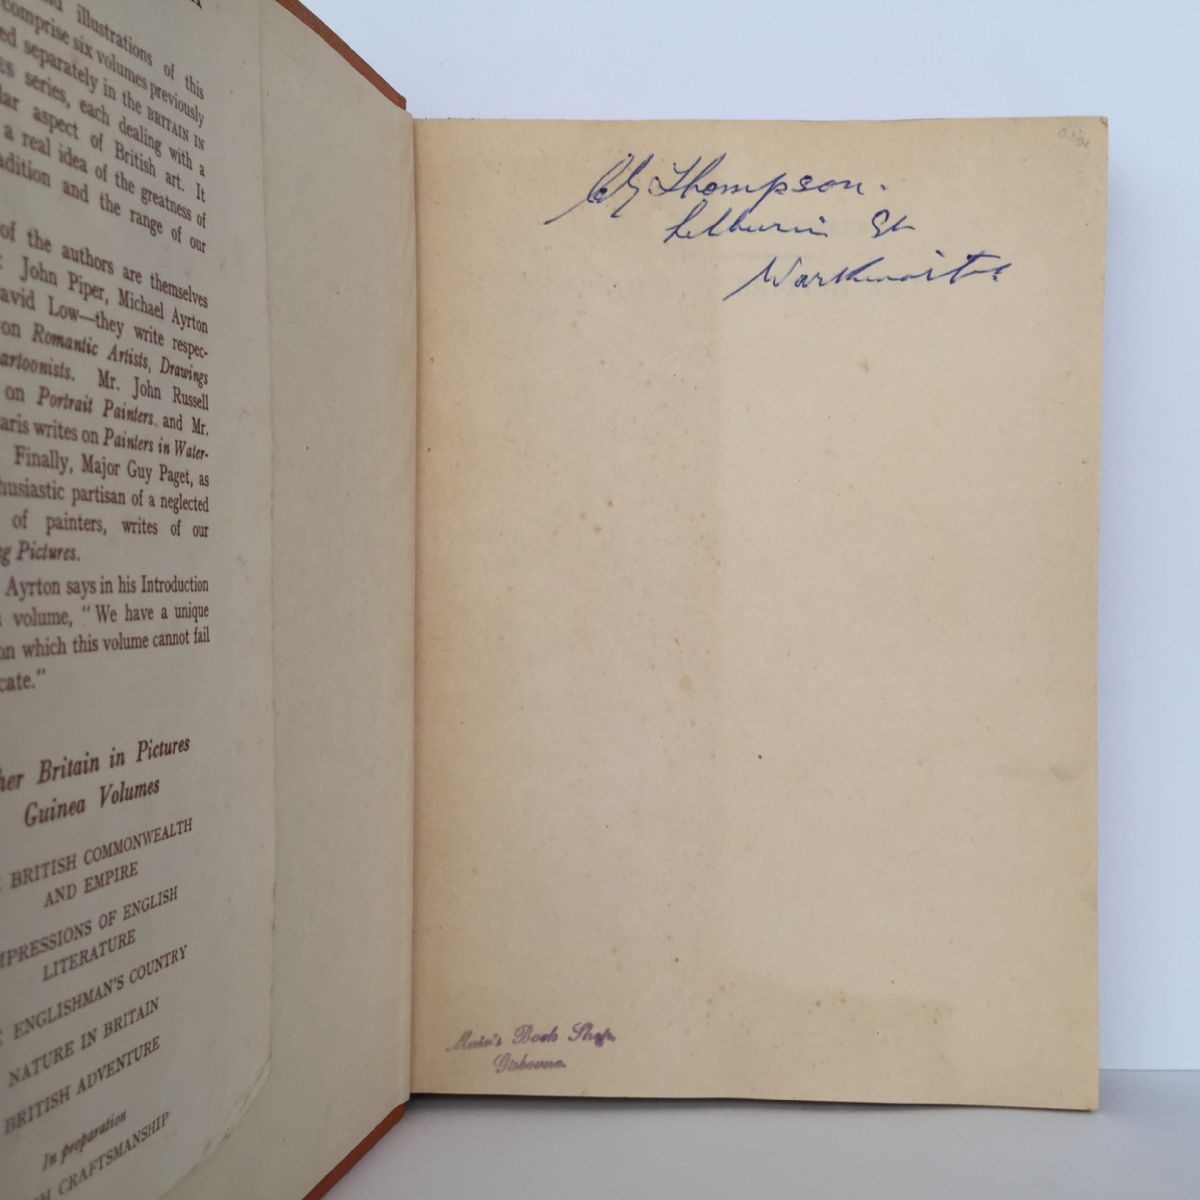 nd illustrations of this
comprise six volumes previously
ed separately in the BRITAIN IN
ES series, each dealing with a
lar aspect of British art. It
a real idea of the greatness of
adition and the range of our
of the authors are themselves
: John Piper, Michael Ayrton
avid Low—they write respec-
on Romantic Artists, Drawings
artoonists. Mr. John Russell
on Portrait Painters, and Mr.
aris writes on Painters in Water-
Finally, Major Guy Paget, as
husiastic partisan of a neglected
of painters, writes of our
g Pictures.
Ayrton says in his Introduction
s volume, “We have a unique
on which this volume cannot fail
cate.”
her Britain in Pictures
Guinea Volumes
BRITISH COMMONWEALTH
AND EMPIRE
MPRESSIONS OF ENGLISH
LITERATURE
E ENGLISHMAN'S COUNTRY
NATURE IN BRITAIN
BRITISH ADVENTURE
In preparation
SH CRAFTSMANSHIP
Thompson.
St
Warkworth
Muir's Book Shop,
Gisborne.